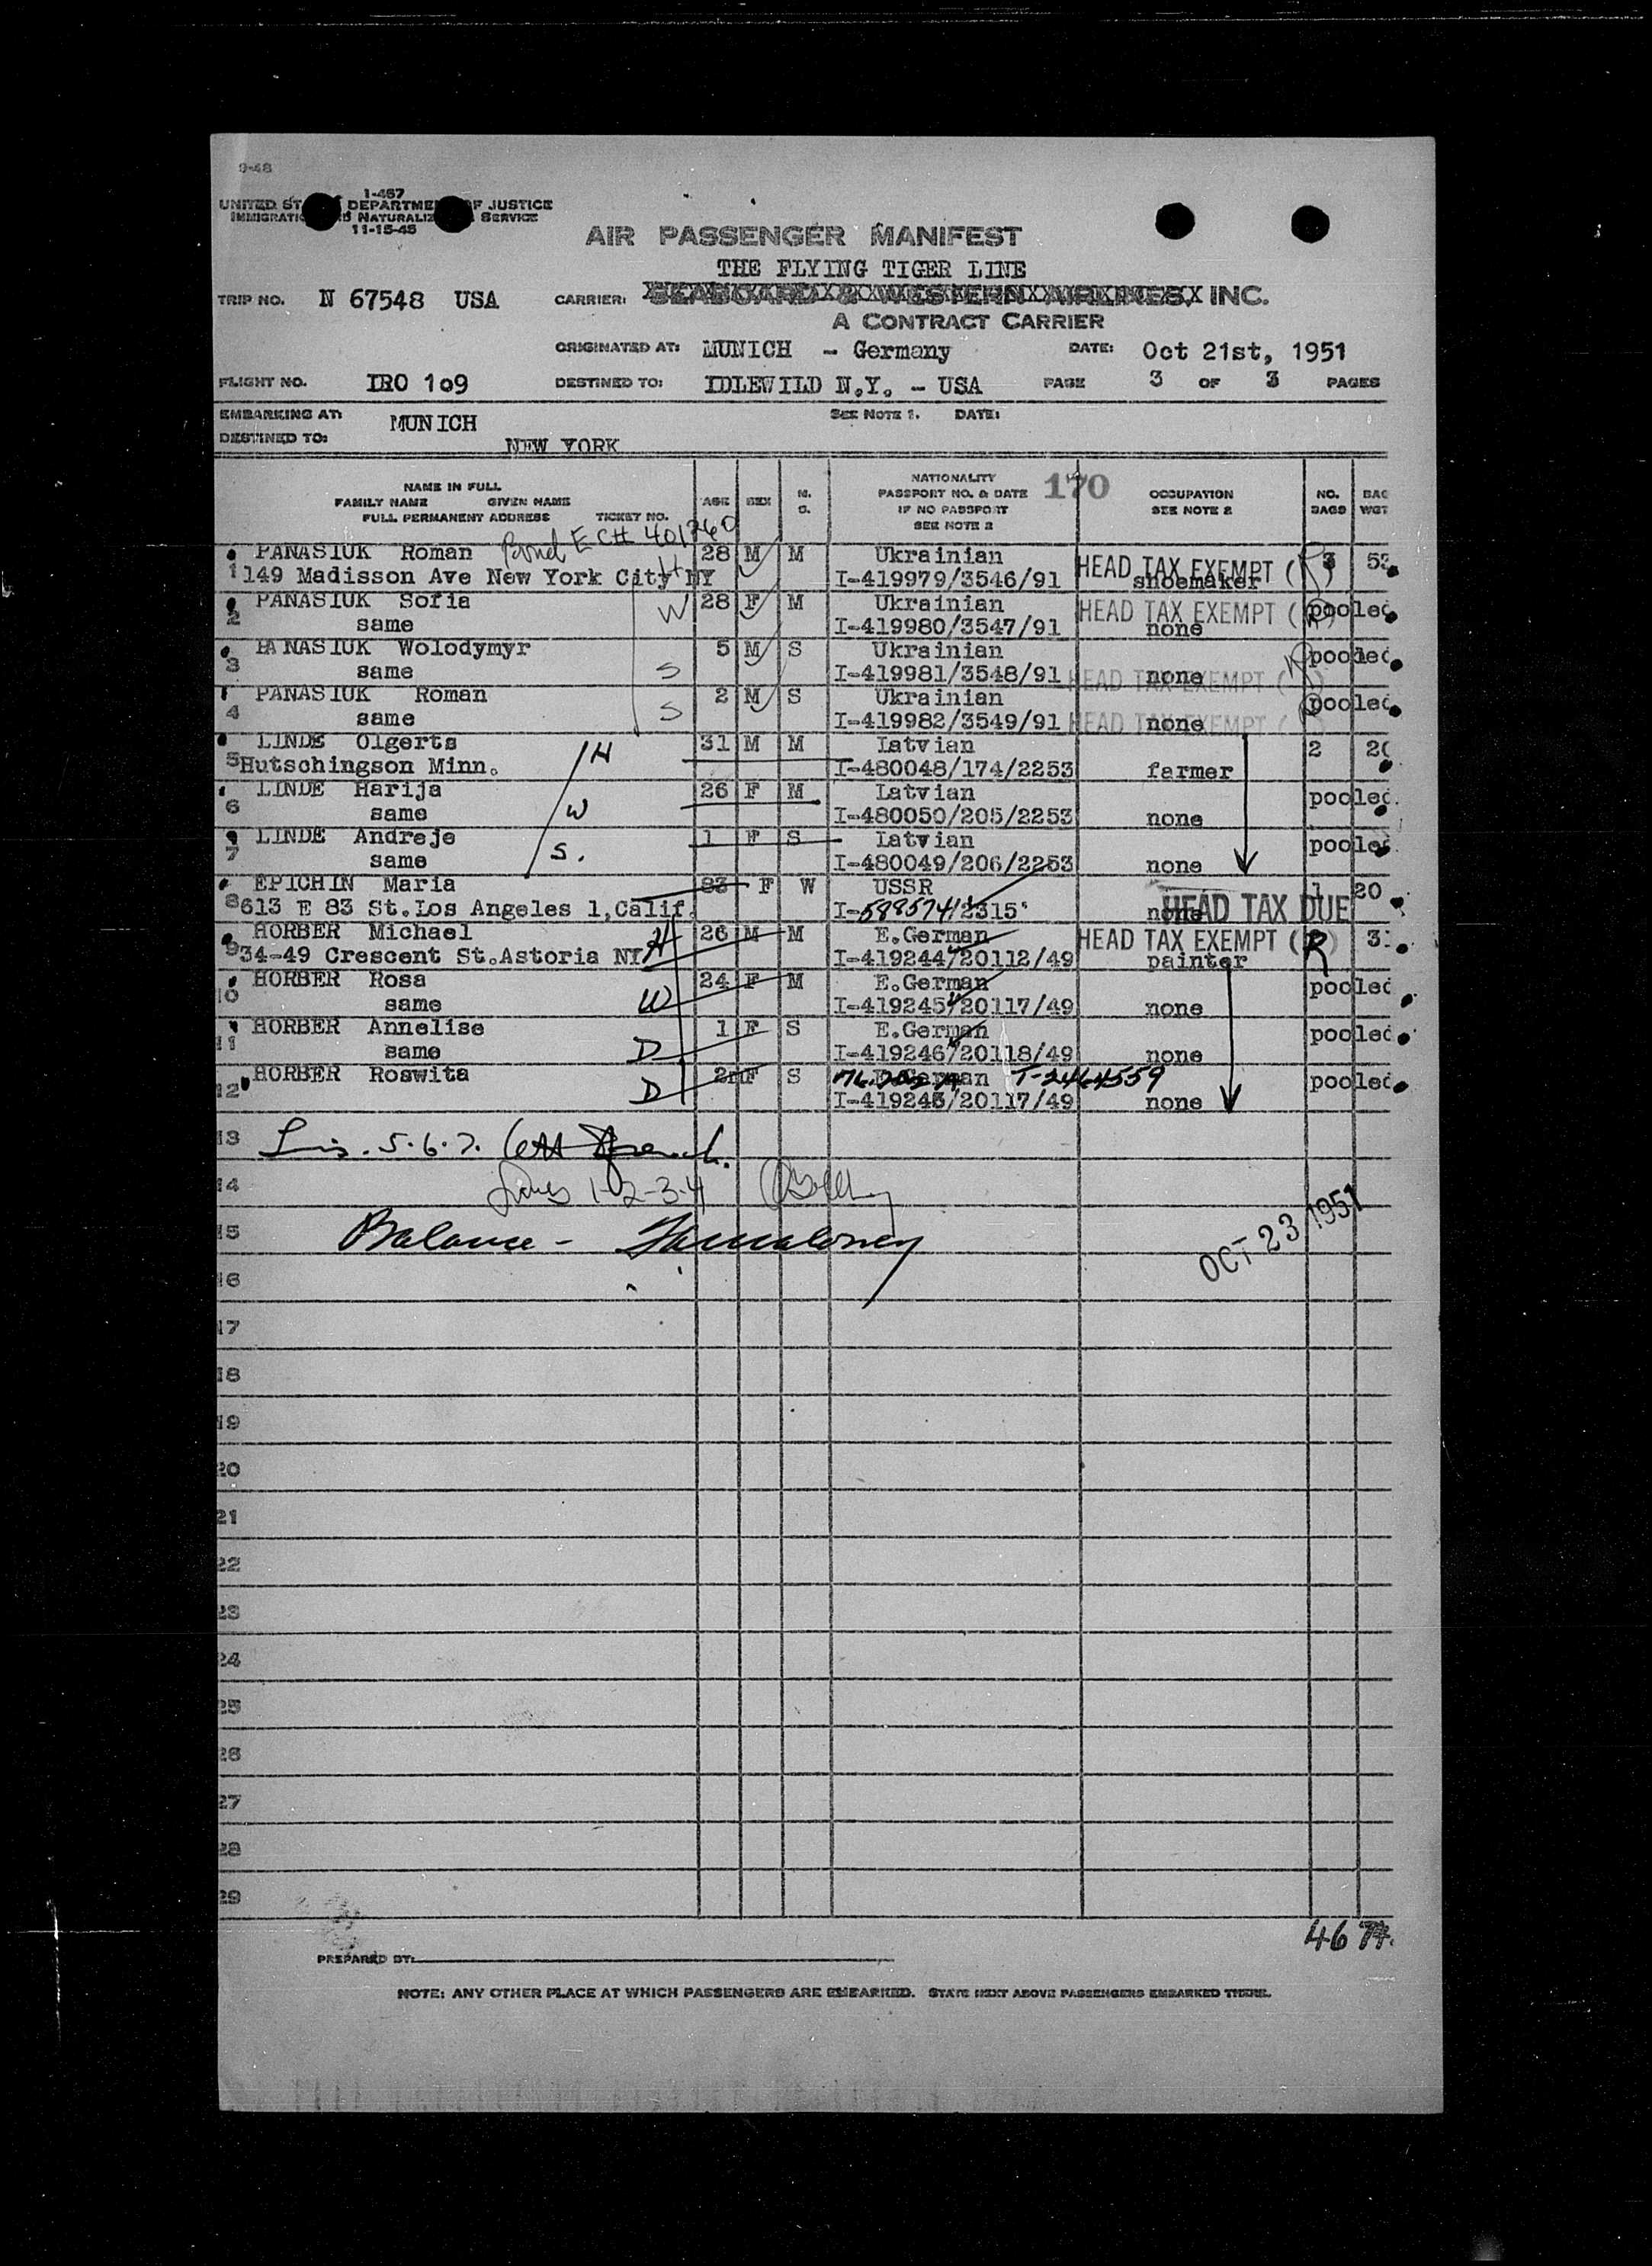 9-48
1-467
UNITED ST DEPARTME F JUSTICE
IMMIGRATIO NATURALIZ SERVICE
11-15-45
AIR PASSENGER MANIFEST
THE FLYING TIGER LINE
TRIP NO. N 67548 USA CARRIER: SEABOARD & WESTERN AIRLINES, INC.
A CONTRACT CARRIER
ORIGINATED AT: MUNICH - Germany DATE: Oct 21st, 1951
FLIGHT NO. IRO 109 DESTINED TO: IDLEWILD N.Y. - USA PAGE 3 OF 3 PAGES
EMBARKING AT: MUNICH SEE NOTE 1. DATE:
DESTINED TO: NEW YORK
NAME IN FULL NATIONALITY 170
FAMILY NAME GIVEN NAME AGE SEX M. S. PASSPORT NO. & DATE OCCUPATION NO. BAG
FULL PERMANENT ADDRESS TICKET NO. IF NO PASSPORT SEE NOTE 2 BAGS WGT
SEE NOTE 2
Bond ECH 401260
PANASIUK Roman 28 M M Ukrainian HEAD TAX EXEMPT (R) 3 52
1 149 Madisson Ave New York City NY H I-419979/3546/91 shoemaker
PANASIUK Sofia W 28 F M Ukrainian HEAD TAX EXEMPT (R) pooled
2 same I-419980/3547/91 none
PANASIUK Wolodymyr 5 M S Ukrainian pooled
3 same S I-419981/3548/91 none HEAD TAX EXEMPT (R)
PANASIUK Roman 2 M S Ukrainian pooled
4 same S I-419982/3549/91 none HEAD TAX EXEMPT ( )
LINDE Olgerts H 31 M M Latvian 2 20
5 Hutschingson Minn. I-480048/174/2253 farmer
LINDE Marija 26 F M Latvian pooled
6 same W I-480050/205/2253 none
LINDE Andreje 1 F S Latvian pooled
7 same S. I-480049/206/2253 none
EPICHIN Maria 83 F W USSR 1 20
8 613 E 83 St.Los Angeles 1,Calif. I-588574/2315 none HEAD TAX DUE
HORBER Michael H 26 M M E.German HEAD TAX EXEMPT (R) 3
9 34-49 Crescent St.Astoria NY I-419244/20112/49 painter
HORBER Rosa 24 F M E.German pooled
10 same W I-419245/20117/49 none
HORBER Annelise 1 F S E.German pooled
11 same D I-419246/20118/49 none
HORBER Roswita 2m F S E.German T-2464559 pooled
12 D I-419245/20117/49 none
13 5.6.7.
14 Lines 1-2-3-4
15 Balance -
OCT 23 1951
16
17
18
19
20
21
22
23
24
25
26
27
28
29
46
PREPARED BY:
NOTE: ANY OTHER PLACE AT WHICH PASSENGERS ARE EMBARKED. STATE NEXT ABOVE PASSENGERS EMBARKED THERE.